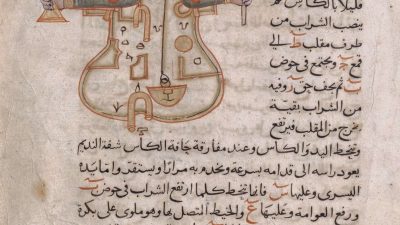 قليلا بالكاس ثم
ينصب الشراب من
طرف مقلب ط الى
قمع ج ويجتمع في حوض
ث ثم يخف حق ر وفيه
من الشراب بقيته
تخرج من المقلب فيرتفع
وتخبط اليد والكاس وعند مفارقة حافة الكاس شفة النديم
يعود راسه الى قدامه بسرعة ويخدم به مرارا ويستقذ واما يده
اليسرى وعليها س فانما تنحط كلما ارتفع الشراب في حوض ث
ورفع العوامة وعليها ع والخيط المتصل بها وهو ملوى على بكرة